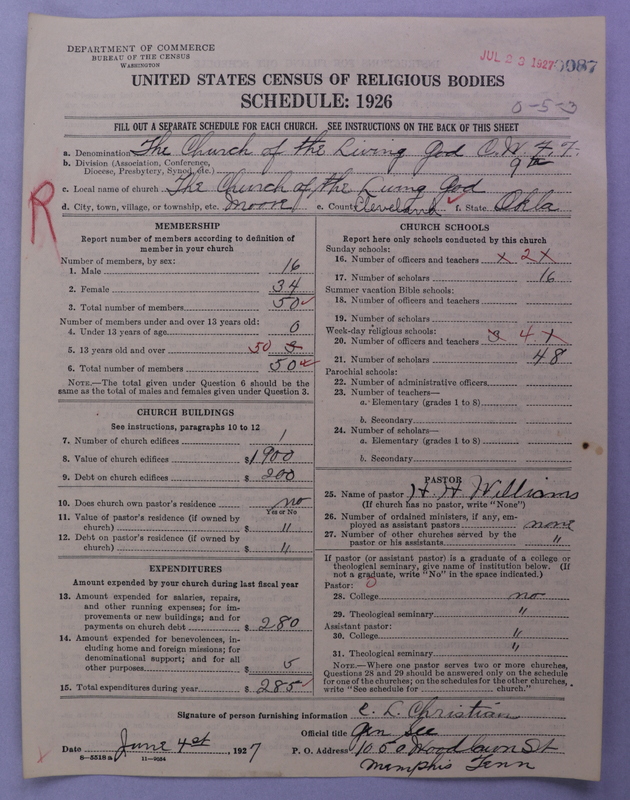 DEPARTMENT OF COMMERCE
BUREAU OF THE CENSUS
WASHINGTON
JUL 23 1927
9987
UNITED STATES CENSUS OF RELIGIOUS BODIES
SCHEDULE: 1926
0-5-3
FILL OUT A SEPARATE SCHEDULE FOR EACH CHURCH. SEE INSTRUCTIONS ON THE BACK OF THIS SHEET
a. Denomination The Church of the Living God C.W.F.F.
b. Division (Association, Conference, Diocese, Presbytery, Synod, etc.) 9th
c. Local name of church The Church of the Living God
d. City, town, village, or township, etc. Moore e. County Cleveland f. State Okla
R
MEMBERSHIP
Report number of members according to definition of
member in your church
Number of members, by sex:
1. Male 16
2. Female 34
3. Total number of members 50
Number of members under and over 13 years old:
4. Under 13 years of age 0
5. 13 years old and over 50 3
6. Total number of members 50
NOTE.—The total given under Question 6 should be the
same as the total of males and females given under Question 3.
CHURCH BUILDINGS
See instructions, paragraphs 10 to 12
7. Number of church edifices 1
8. Value of church edifices $1900
9. Debt on church edifices $200
10. Does church own pastor's residence no
Yes or No
11. Value of pastor's residence (if owned by
church) $ "
12. Debt on pastor's residence (if owned by
church) $ "
EXPENDITURES
Amount expended by your church during last fiscal year
13. Amount expended for salaries, repairs,
and other running expenses; for im-
provements or new buildings; and for
payments on church debt $280
14. Amount expended for benevolences, in-
cluding home and foreign missions; for
denominational support; and for all
other purposes $5
15. Total expenditures during year $285
CHURCH SCHOOLS
Report here only schools conducted by this church
Sunday schools:
16. Number of officers and teachers x 2 x
17. Number of scholars 16
Summer vacation Bible schools:
18. Number of officers and teachers
19. Number of scholars
Week-day religious schools:
20. Number of officers and teachers 3 4 x
21. Number of scholars 48
Parochial schools:
22. Number of administrative officers
23. Number of teachers—
a. Elementary (grades 1 to 8)
b. Secondary
24. Number of scholars—
a. Elementary (grades 1 to 8)
b. Secondary
PASTOR
25. Name of pastor H. H. Williams
(If church has no pastor, write "None")
26. Number of ordained ministers, if any, em-
ployed as assistant pastors none
27. Number of other churches served by the
pastor or his assistants "
If pastor (or assistant pastor) is a graduate of a college or
theological seminary, give name of institution below. (If
not a graduate, write "No" in the space indicated.)
Pastor:
28. College no
29. Theological seminary "
Assistant pastor:
30. College "
31. Theological seminary "
NOTE.—Where one pastor serves two or more churches,
Questions 28 and 29 should be answered only on the schedule
for one of the churches; on the schedules for the other churches,
write "See schedule for church."
Signature of person furnishing information C. L. Christian
Official title Gen Sec
Date June 4st, 1927 P. O. Address 1050 Woodlawn St
Memphis Tenn
8-5518a 11-9034